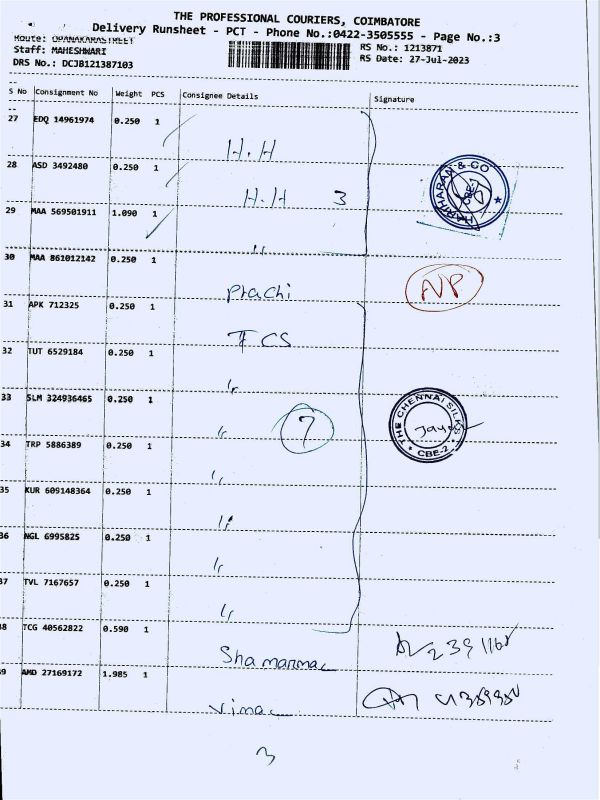 THE PROFESSIONAL COURIERS, COIMBATORE
Delivery Runsheet - PCT - Phone No.:0422-3505555 - Page No.:3
Route: OPANAKARASTREET
RS No.: 1213871
Staff: MAHESHWARI
RS Date: 27-Jul-2023
DRS No.: DCJB121387103
S No Consignment No Weight PCS Consignee Details Signature
27 EDQ 14961974 0.250 1 H.H
28 ASD 3492480 0.250 1 H.H 3
HARIHARAN & CO CBE-1
29 MAA 569501911 1.090 1 "
30 MAA 861012142 0.250 1 Prachi NP
31 APK 712325 0.250 1 TCS
32 TUT 6529184 0.250 1 "
33 SLM 324936465 0.250 1 " 7
THE CHENNAI SILKS CBE-2
34 TRP 5886389 0.250 1 "
35 KUR 609148364 0.250 1 "
36 NGL 6995825 0.250 1 "
37 TVL 7167657 0.250 1 "
38 TCG 40562822 0.590 1
39 AMD 27169172 1.985 1
3